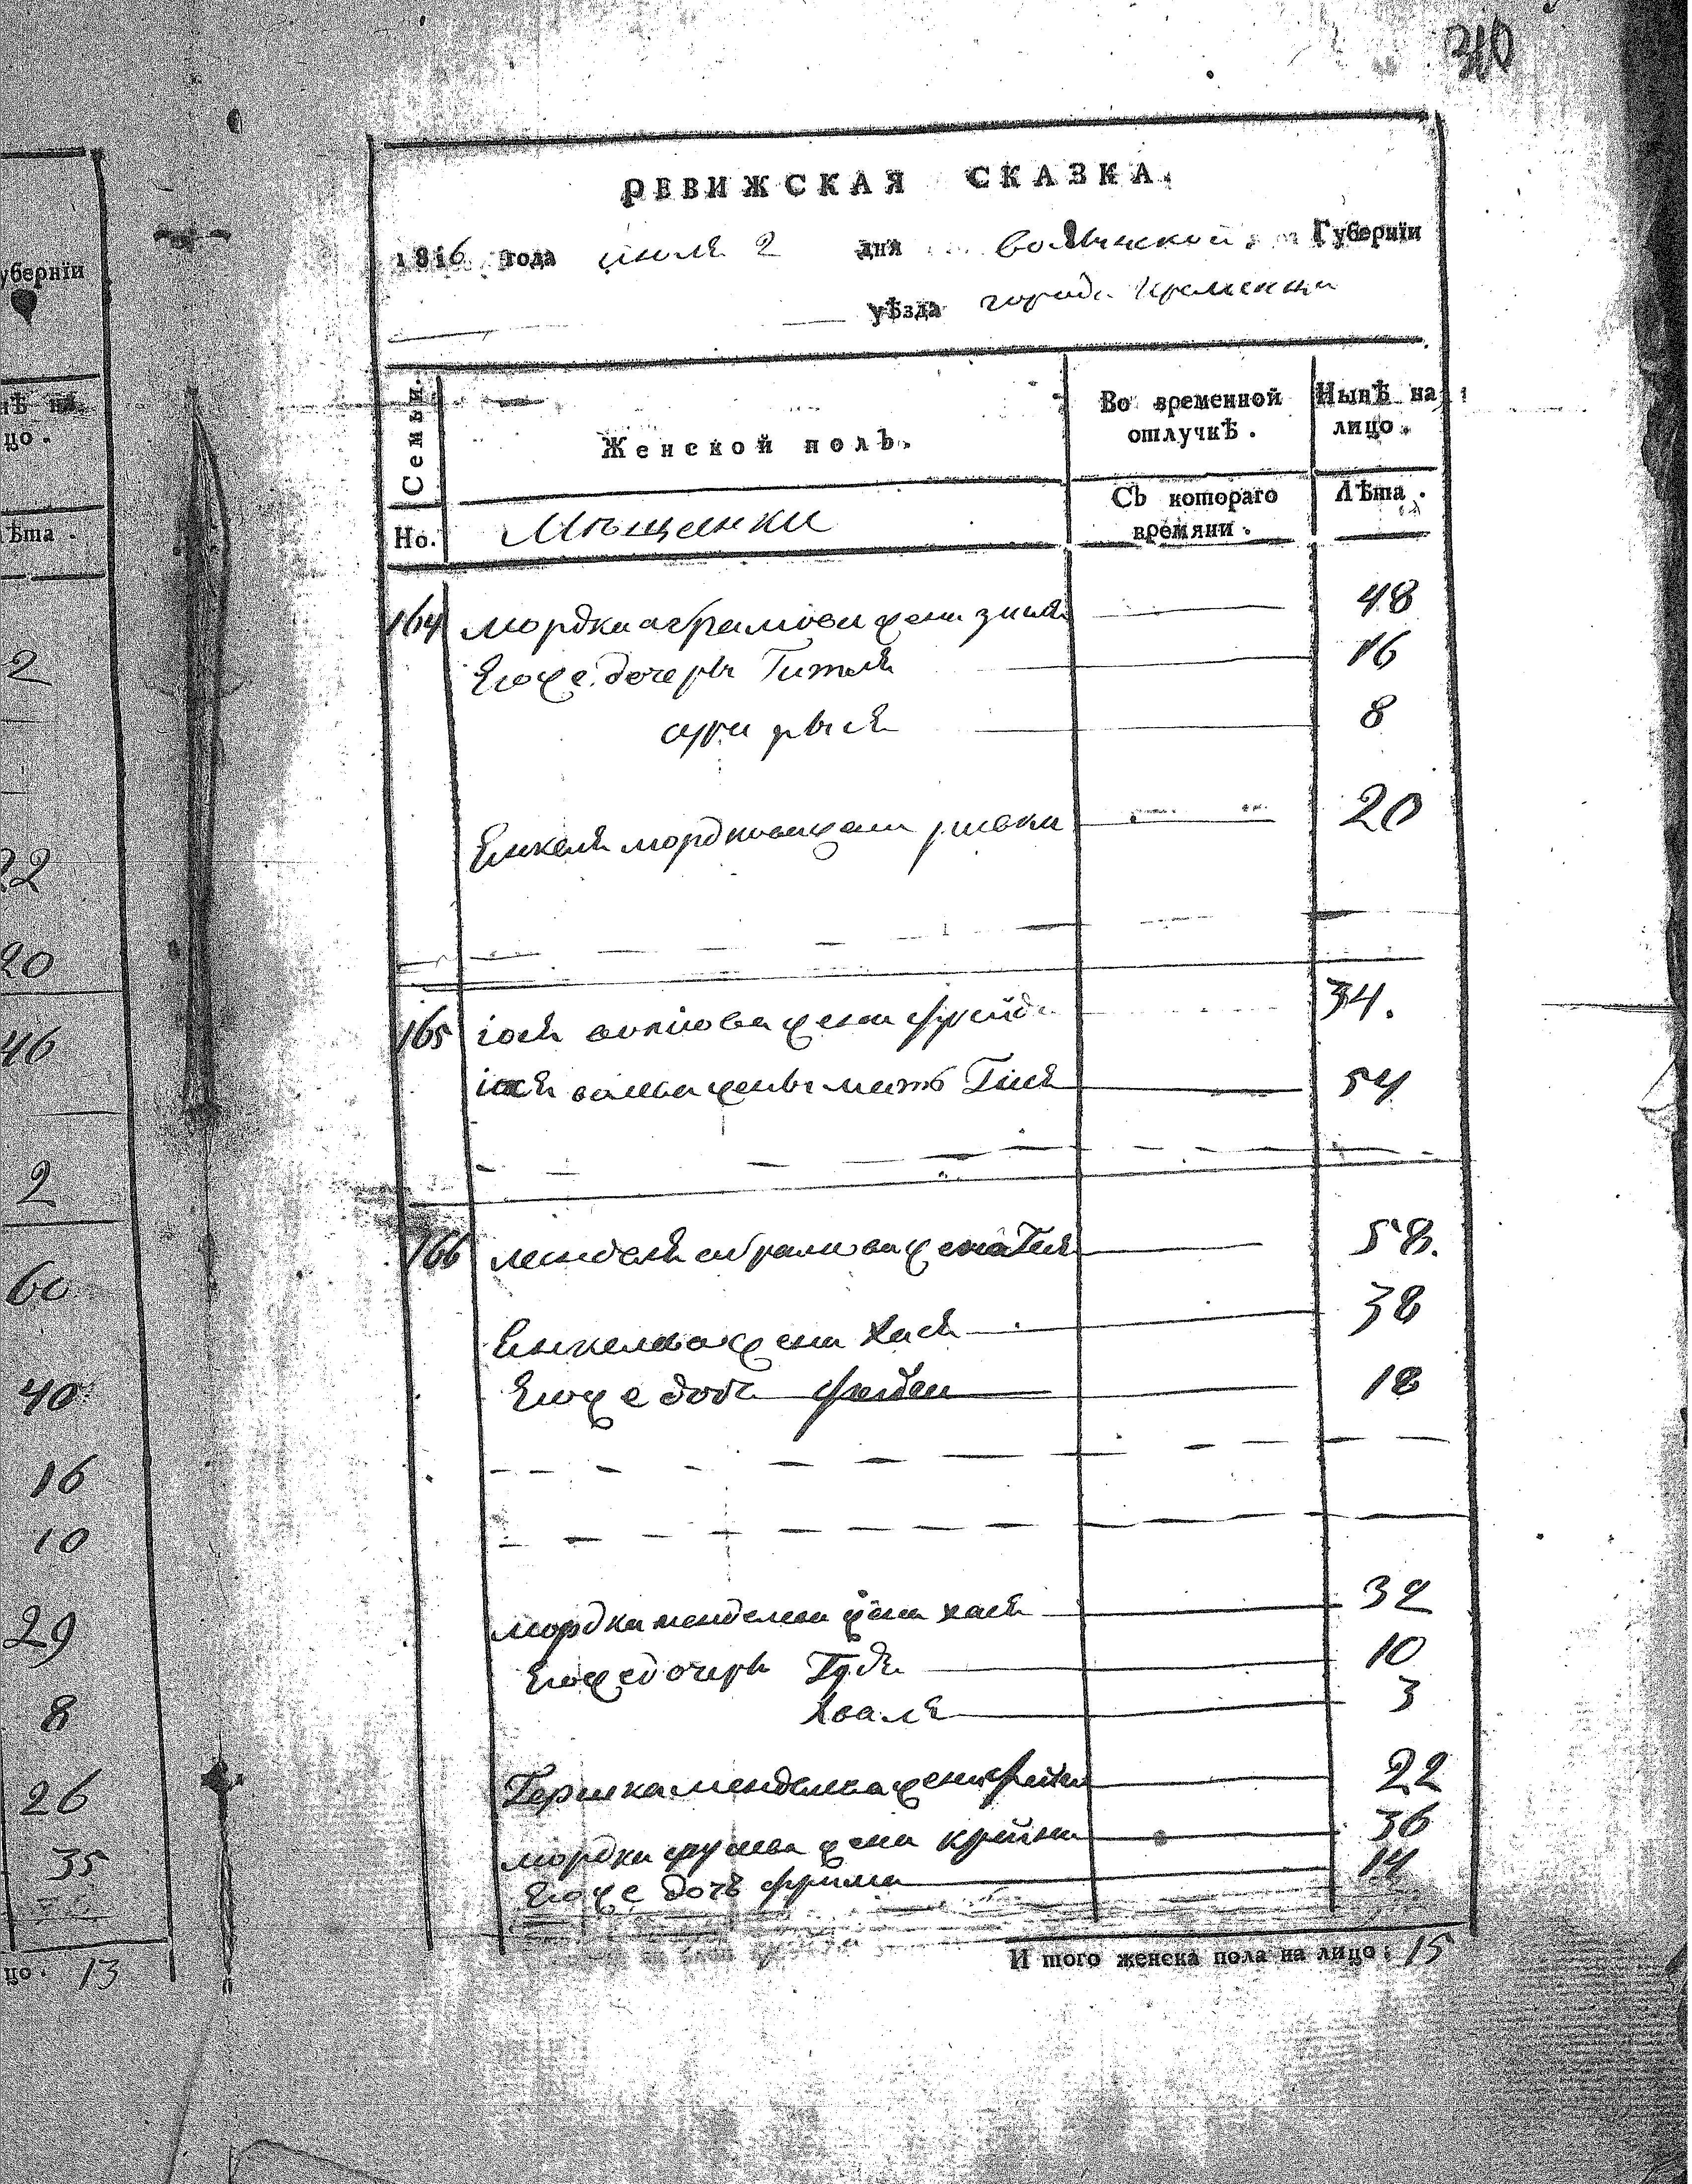 310
РЕВИЖСКАЯ СКАЗКА.
1816 года июля 2 дня волынской Губернїи
уѣзда города кременца
Семьи.
Женской полъ.
Во временной отлучкѣ.
Нынѣ на лицо.
Но.
Мѣщанки
Съ котораго времяни.
Лѣта.
164 мордка абрамова жена зися 48
Егоже дочерь Гитля 16
сура рыся 8
Енкеля мордкова жена ривка 20
165 іося жена фрейда 34.
іося жены мать Гися 54
166 менделя абрамова жена 58.
Енкелева жена Хася 38
Егоже дочь фейга 18
мордка менделева жена хася 32
Егоже дочерь 10
Хваля 3
Гершка менделева жена фейга 22
мордка жена крейна 36
Егоже дочь фрима 14
И того женска пола на лицо: 15
убернїи
нѣ на
цо.
ѣта.
2
22
20
46
2
60
40
16
10
29
8
26
35
цо. 13